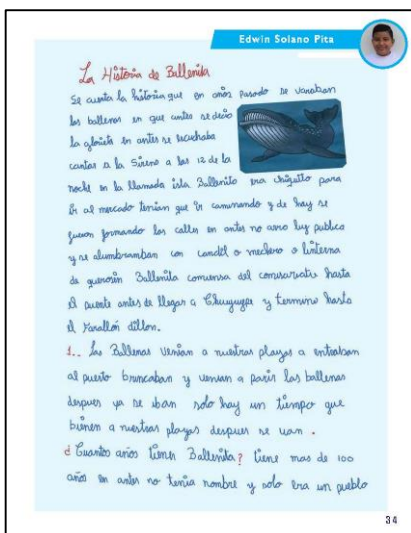 Edwin Solano Pita
La Historia de Ballenita
Se cuenta la historia que en años pasado se varaban
las ballenas en que antes se decia
la glorieta en antes se escuchaba
cantar a la Sirena a las 12 de la
noche en la llamada isla Ballenita era chiquito para
ir al mercado tenian que ir caminando y de hay se
fueron formando las calles en antes no avia luz publica
y se alumbramban con candil o mechero o linterna
de querosin Ballenita comiensa del comisariato hasta
el puente antes de llegar a Chuyuype y termina hasta
el Farallón dillon.
1.. Las Ballenas venian a nuestras playas a entraban
al puerto brincaban y venian a parir las ballenas
despues ya se iban solo hay un tiempo que
bienen a nuestras playas despues se van.
¿Cuantos años tienen Ballenita? tiene mas de 100
años en antes no tenia nombre y solo era un pueblo
34